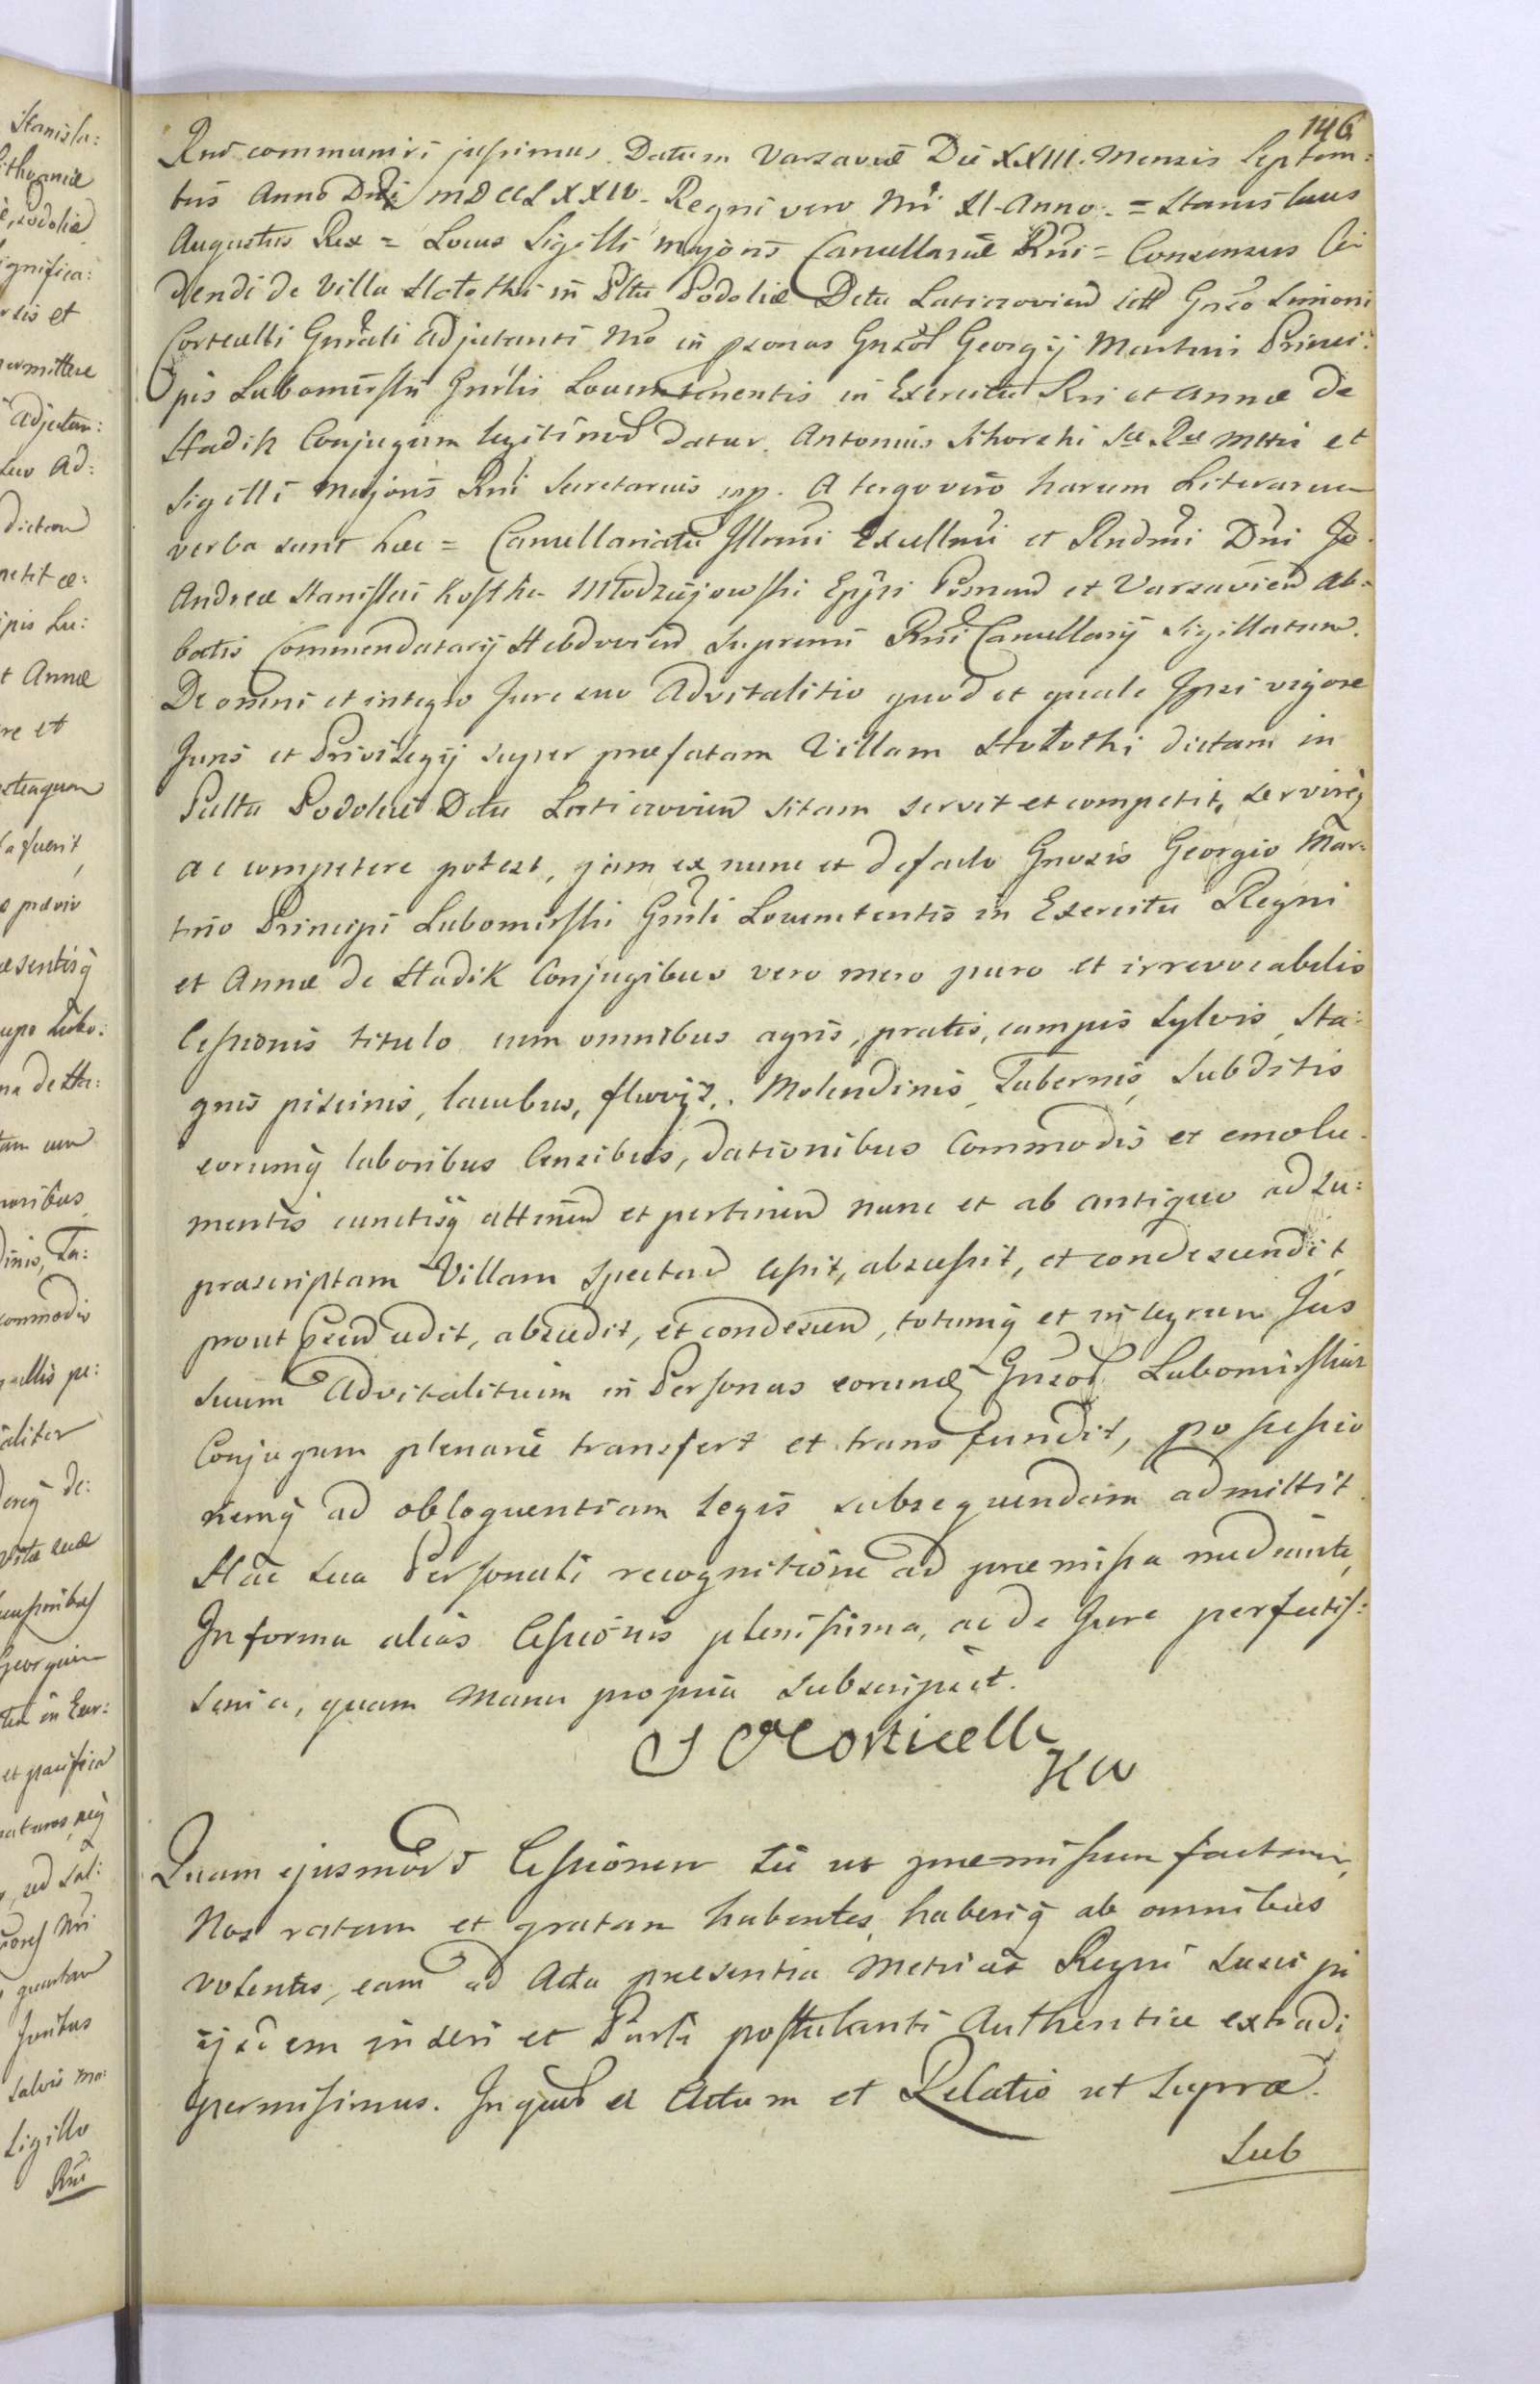 146
Rni communiri jussimus. Datum Varsaviæ Die XXIII. Mensis Septem:
bris Anno Dni MDCCLXXIV. Regni vero Nri XI. Anno. = Stanislaus
Augustus Rex = Locus Sigilli Majoris Cancellariæ Rni = Consensus Ce
dendi de Villa Hołothi in Pltu Podoliæ Dctu Laticzovien sitt Gnso Simoni
Corticelli Gnrali Adjutanti Nro in psonas Gnsor Georgij Martini Princi:
pis Lubomirski Gnrlis Locumtenentis in Exercitu Rni et Annæ de
Hadik Conjugum legitimor datur. Antonius Sikorski Sæ Ræ Mttis et
Sigilli Majoris Rni Secretarius mp. A tergo vero harum Literarum
verba sunt hæc = Cancellariatu Illrmi Excellmi et Rndmi Dni Jo.
Andreæ Stanislai Kostka Młodziejowski Eppi Posnan et Varsavien Ab-
batis Commendatarij Hebdovien Supremi Rni Cancellarij Sigillatum.
De omni et integro Jure suo Advitalitio quod et quale Ipsi vigore
Juris et Privilegij super præfatam Villam Hołothi dictam in
Paltu Podoliæ Dctu Laticzovien sitam servit et competit, servireq
ac competere potest, jam ex nunc et de facto Gnosis Georgio Mar=
tino Principi Lubomirski Gnrli Locumtentis in Exercitu Regni
et Annæ de Hadik Conjugibus vero mero puro et irrevocabilis
Cessionis titulo cum omnibus agris, pratis, campis Sylvis, Sta:
gnis piscinis, lacubus, fluvijs, Molendinis, Tabernis, Subditis
eorumq laboribus Censibus, dationibus Commodis et emolu.
mentis cunctisq attinen et pertinen nunc et ab antiquo ad su:
præscriptam Villam Spectan cessit, abscessit, et condescendit,
prout Psen cedit, abscedit, et condescen, totumq et integrum Jus
suum Advitalitium in Personas eorund Gnsor Lubomirskich
Conjugum plenarie transfert et transfundit, possessio
nemq ad obloquentiam Legis subsequendam admittit.
Hac sua Personali recognitione ad præmissa mediante,
In forma alias Cessionis plenissima, ac de Jure perfectis:
sima, quam Manu propria subscripsit.
S Corticelli
Quam ejusmodi Cessionem sic ut præmissum factam,
Nos ratam et gratam habentes, haberiq ab omnibus
volentes, eam ad Acta præsentia Metrices Regni suscipi
ijsdem inseri et Parti postulanti Authentice extradi
permisimus. In quor ei Actum et Relatio ut Supra.
Sub